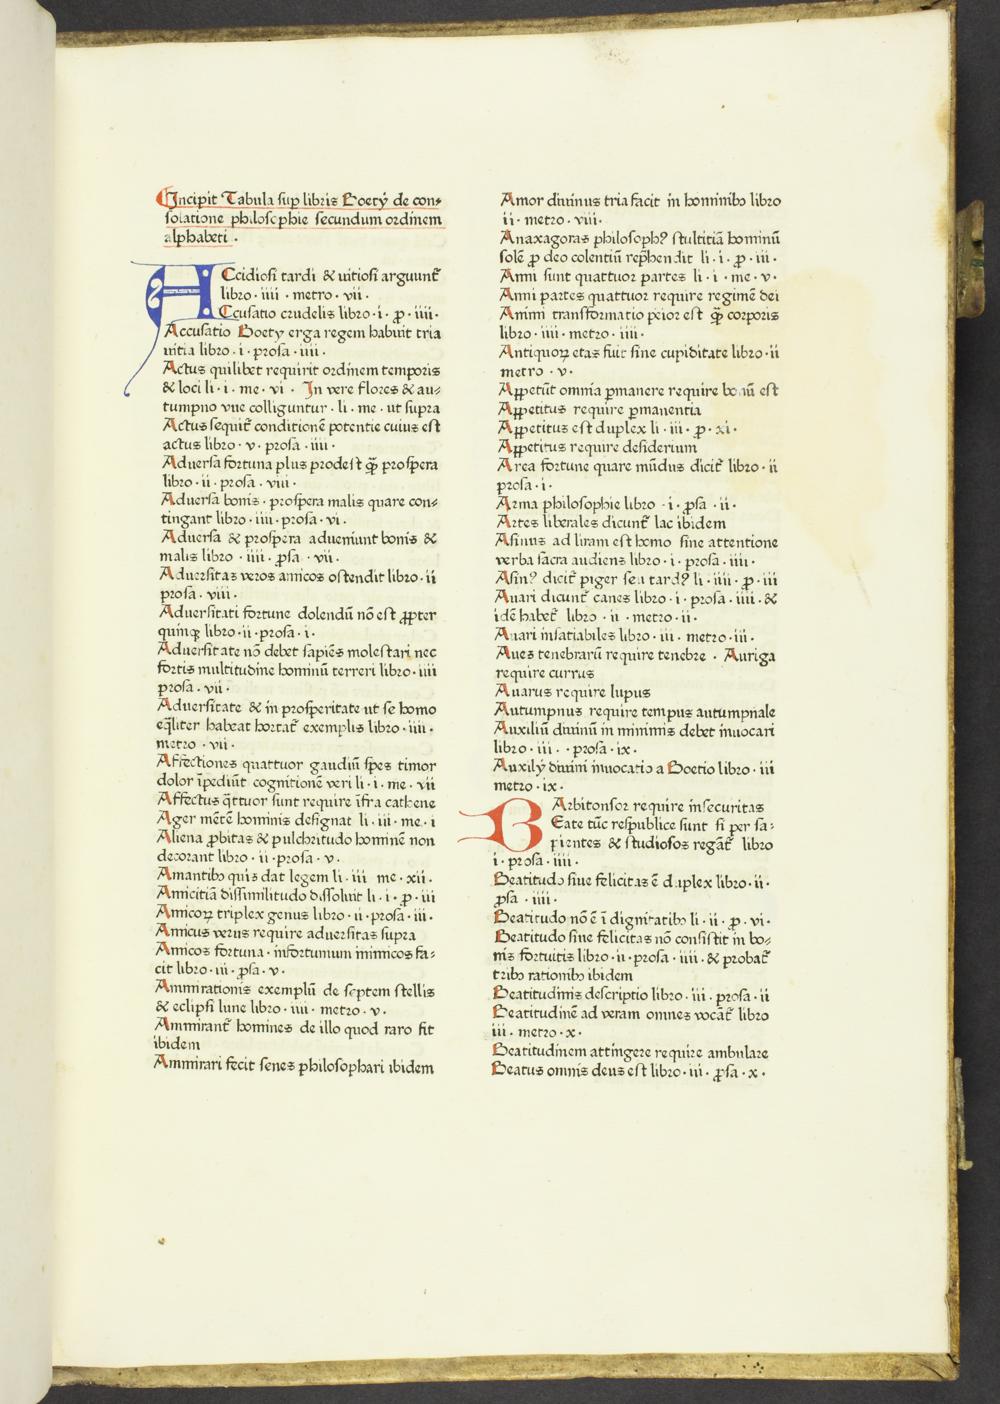 Incipit Tabula sup̱ libris Boetÿ de con⸗
solatione philosophie secundum ordinem
alphabeti .
ACcidiosi tardi & uitiosi arguunt᷑
libro · iiii · metro · vii ·
Accusatio crudelis libro · i · ꝓ · iiii ·
Accusatio Boety erga regem habuit tria
uitia libro · i · prosa · iiii ·
Actus quilibet requirit ordinem temporis
& loci li · i · me · vi · In vere flores & au⸗
tumpno vue colliguntur · li · me · ut supra
Actus sequit᷑ conditionẽ potentie cuius est
actus libro · v · prosa · iiii ·
Aduersa fortuna plus prodest q̃ꝫ prospera
libro · ii · prosa · viii ·
Aduersa bonis · prospera malis quare con⸗
tingant libro · iiii · prosa · vi ·
Aduersa & prospera adueniunt bonis &
malis libro · iiii · ꝓsa · vii ·
Aduersitas veros amicos ostendit libro · ii
prosa · viii ·
Aduersitati fortune dolendũ nõ est ꝓpter
quinqꝫ libro · ii · prosa · i ·
Aduersitate nõ debet sapiẽs molestari nec
fortis multitudine hominũ terreri libro · iiii
prosa · vii ·
Aduersitate & in prosperitate ut se homo
eq̃liter habeat hortat᷑ exemplis libro · iiii ·
metro · vii ·
Affectiones quattuor gaudiũ spes timor
dolor ĩpediũt cognitionẽ veri li · i · me · vii
Affectus q̃ttuor sunt require ĩfra cathene
Ager mẽtẽ hominis designat li · iii · me · i
Aliena ꝓbitas & pulchritudo hominẽ non
decorant libro · ii · prosa · v ·
Amantibꝫ quis dat legem li · iii me · xii ·
Amicitiã dissimilitudo dissoluit li · i · ꝓ · iii
Amicoꝝ triplex genus libro · ii · prosa · iii ·
Amicus verus require aduersitas supra
Amicos fortuna · infortunium inimicos fa⸗
cit libro · iii · ꝓsa · v ·
Ammirationis exemplũ de septem stellis
& eclipsi lune libro · iiii · metro · v ·
Ammirant᷑ homines de illo quod raro fit
ibidem
Ammirari fecit senes philosophari ibidem
Amor diuinus tria facit in hominibꝫ libro
ii · metro · viii ·
Anaxagoras philosophꝰ stultitiã hominũ
solẽ ꝓ deo colentiũ rep̃hendit li · i · ꝓ · iii ·
Anni sunt quattuor partes li · i · me · v ·
Anni partes quattuor require regimẽ dei
Animi transformatio peior est q̃ꝫ corporis
libro · iiii · metro · iiii ·
Antiquoꝝ etas fuit sine cupiditate libro · ii
metro · v ·
Appetũt omnia ꝑmanere require bonũ est
Appetitus require ꝑmanentia
Appetitus est duplex li · iii · ꝓ · xi ·
Appetitus require desiderium
Area fortune quare mũdus dicit᷑ libro · ii
prosa · i ·
Arma philosophie libro · i · ꝓsa · ii ·
Artes liberales dicunt᷑ lac ibidem
Asinus ad liram est homo sine attentione
verba sacra audiens libro · i · prosa · iiii ·
Asinꝰ dicit᷑ piger seu tardꝰ li · iiii · ꝓ · iii
Auari dicunt᷑ canes libro · i · prosa · iiii · &
idẽ habet᷑ libro · ii · metro · ii ·
Auari insatiabiles libro · iii · metro · iii ·
Aues tenebrarũ require tenebre · Auriga
require currus
Auarus require lupus
Autumpnus require tempus autumpnale
Auxiliũ diuinũ in minimis debet inuocari
libro · iii · · prosa · ix ·
Auxilÿ diuini inuocatio a Boetio libro · iii
metro · ix ·
BArbitonsor require insecuritas
Beate tũc respublice sunt si per sa⸗
pientes & studiosos regãt᷑ libro
i · prosa · iiii ·
Beatitudo siue felicitas ẽ duplex libro · ii ·
ꝓsa · iiii ·
Beatitudo nõ ẽ ĩ dignitatibꝫ li · ii · ꝓ · vi ·
Beatitudo sine felicitas nõ consistit in bo⸗
nis fortuitis libro · ii · prosa · iiii · & probat᷑
tribꝫ rationibꝫ ibidem
Beatitudinis descriptio libro · iii · prosa · ii
Beatitudinẽ ad veram omnes vocãt᷑ libro
iii · metro · x ·
Beatitudinem attingere require ambulare
Beatus omnis deus est libro · iii · ꝓsa · x ·